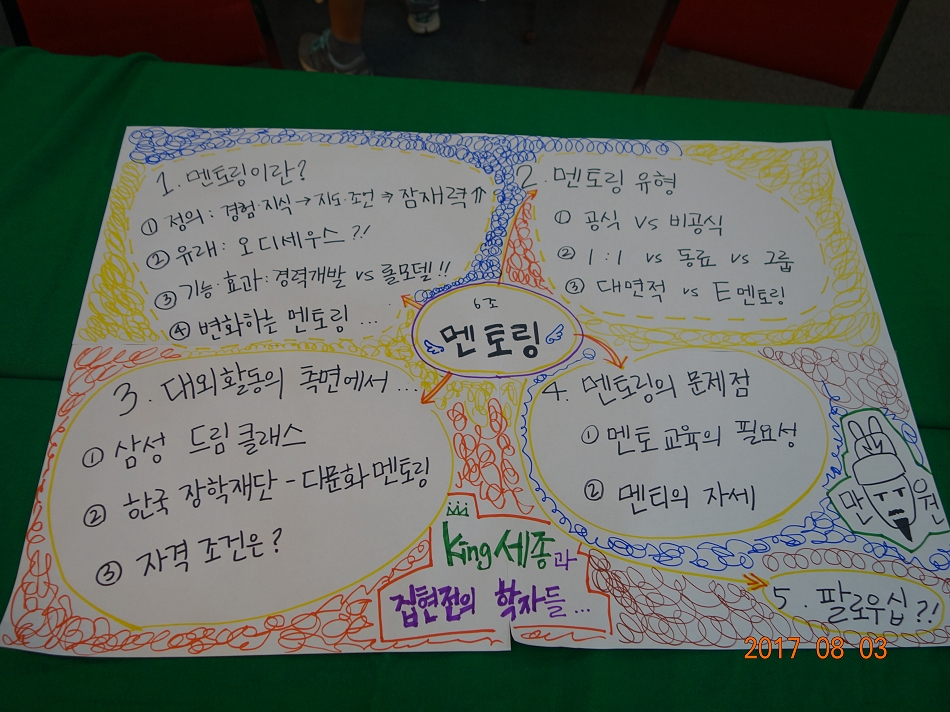 1. 멘토링이란?
① 정의 : 경험·지식 → 지도·조건 ⇒ 잠재력 ⇈
② 유래 : 오디세우스 ?!
③ 기능·효과 : 경력개발 vs 롤모델!!
④ 변화하는 멘토링 ...
2. 멘토링 유형
① 공식 vs 비공식
② 1:1 vs 동료 vs 그룹
③ 대면적 vs E멘토링
6조
멘토링
3. 대외활동의 측면에서 ...
① 삼성 드림클래스
② 한국 장학재단 - 다문화 멘토링
③ 자격 조건은?
4. 멘토링의 문제점
① 멘토 교육의 필요성
② 멘티의 자세
만 원
King 세종과
집현전의 학자들...
5. 팔로우십?!
2017 08 03